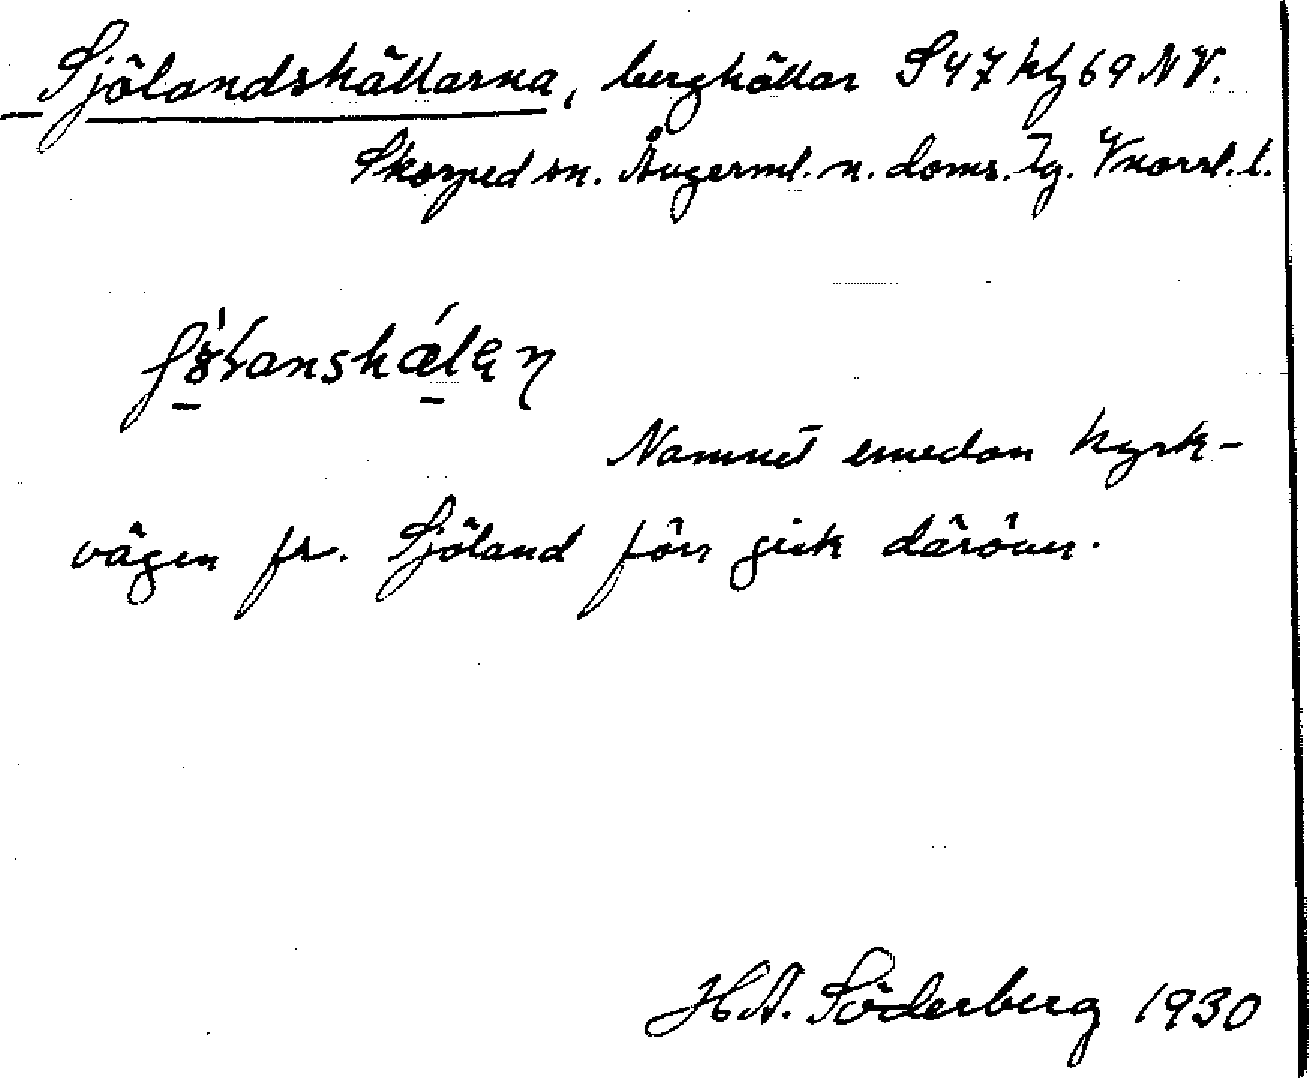 Sjölandshällarna, berghällar S47 kbl 69 NV.
Skorped sn. Ångerml. n. doms. Tg. Vnorrl. l.
Namnet emedan kyrk-
vägen fr. Sjöland förr gick däröver.
H.A. Söderberg 1930